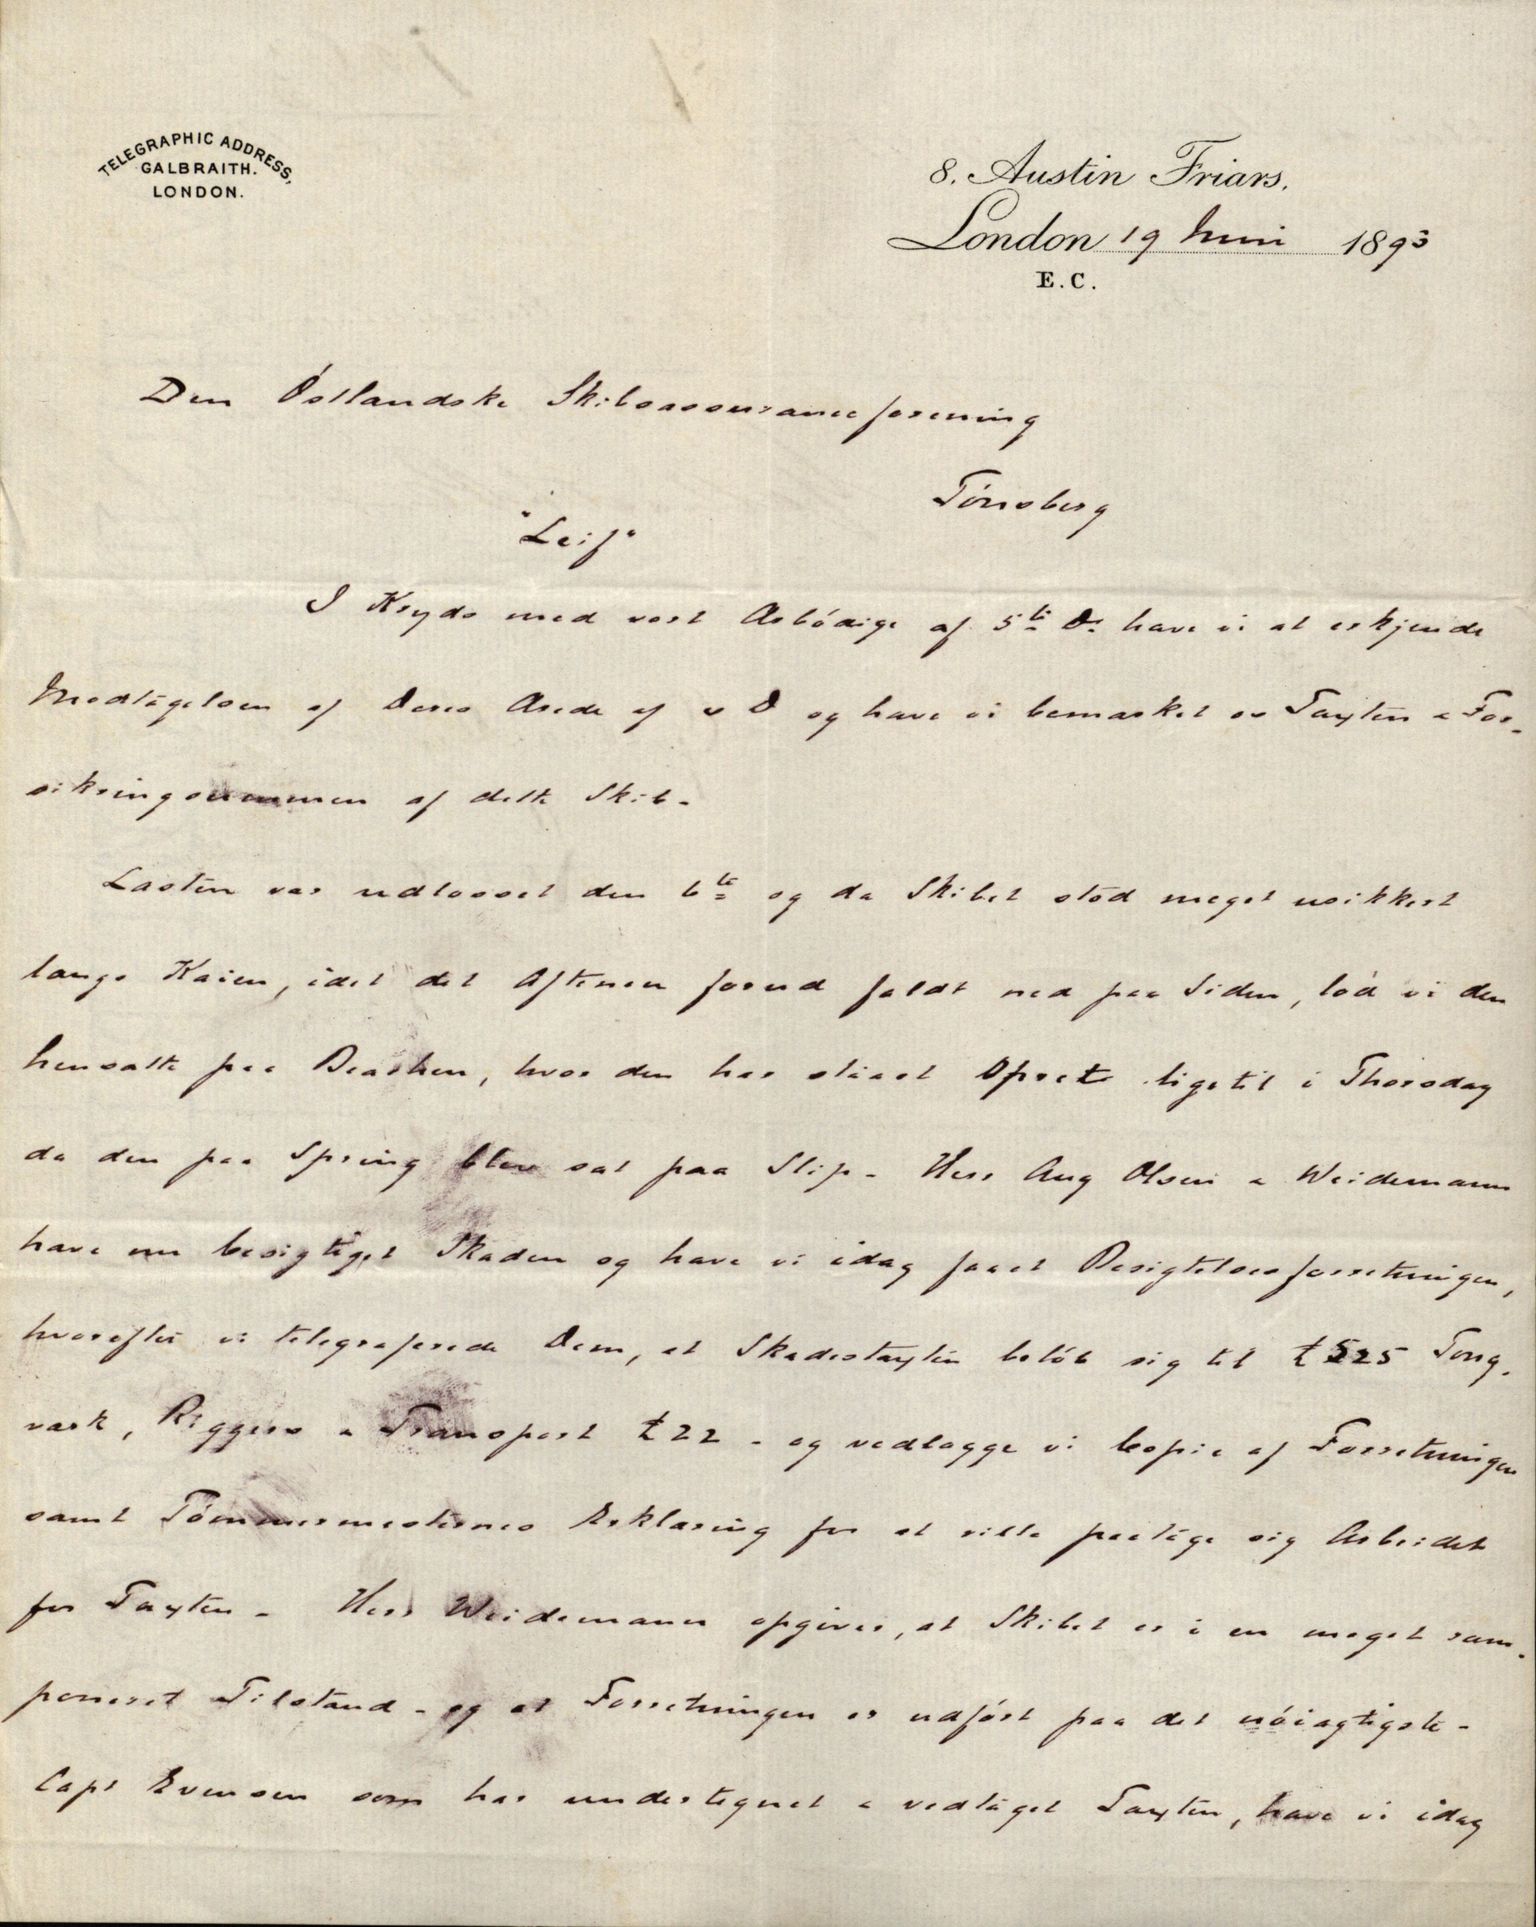 TELEGRAPHIC ADDRESS,
GALBRAITH.
LONDON.
8. Austin Friars.
London 19 Juni 1893
E.C.
Den Östlandske Skibsassuranceforening
Tönsberg
"Leif"
I Kryds med vort Ærbödige af 5te Ds have vi at erkjende
Modtagelsen af Deres Ærede af s D og have vi bemærket os Taxten & For-
sikringsummen af dette Skib.
Lasten var udlosset den 6te og da Skibet stod meget usikkert
langs Kaien, idet det Aftenen forud faldt ned paa Siden, lod vi den
hensætte paa Beachen, hvor den har staaet Opret ligetil i Thorsdag
da den paa Spring blev sat paa Slip - Herr Aug Olsen & Weidemann
have nu besigtiget Skaden og have vi idag faaet Besigtelsesforretningen,
hvorefter vi telegraferede Dem, at Skadestaxten belöb sig til £525 Toug.
værk, Riggers & Transport £22 - og vedlægge vi Copie af Forretningen
samt Tömmermesternes Erklæring for at ville paatage sig Arbeidet
for Taxten - Herr Weidemann opgiver, at Skibet er i en meget ram-
poneret Tilstand - og at Forretningen er udfört paa det nöiagtigste -
Capt Evensen som har undertegnet & vedtaget Taxten, have vi idag